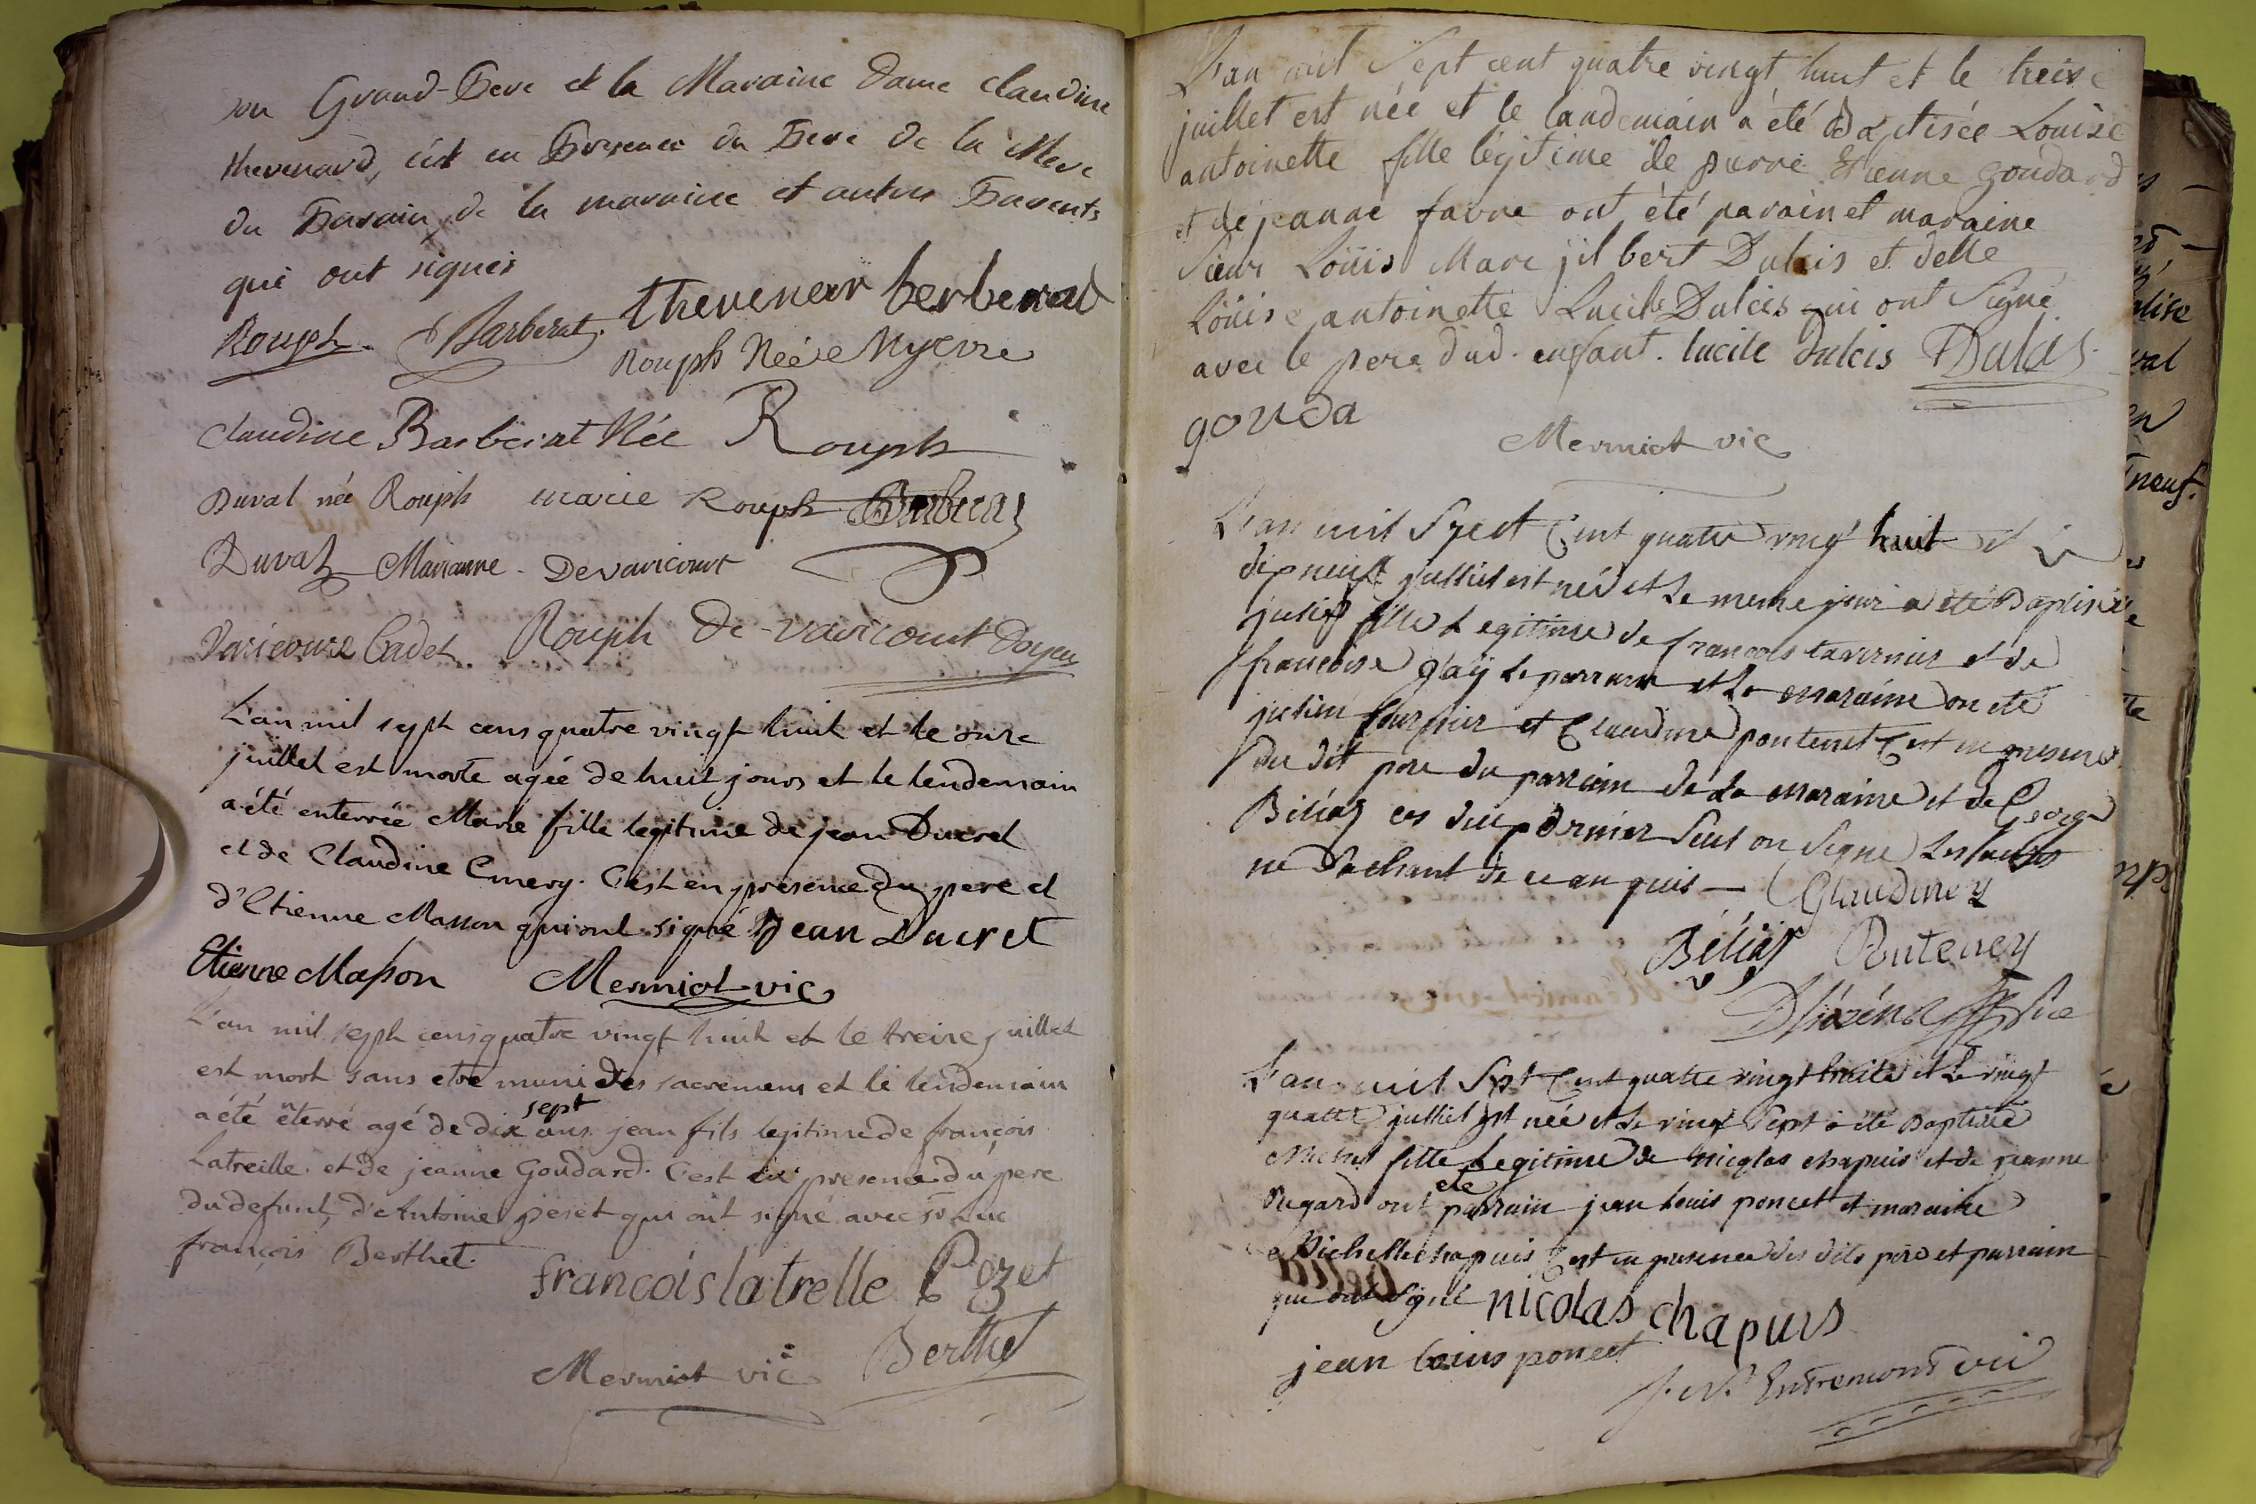 son Grand-Pere et la Maraine Dame claudine
thevenard, cést en Presence du Pere de la Mere
du Parain, de la maraine et autres Parents
qui ont signés
Rouph. Barberat. thevenear berberad
Rouph Née e Nyevre
claudine Barberat Née Rouph
Duval née Rouph marie Rouph Barberat
Duval Marianne - Devaricourt
Varicourt Cadet. Rouph De-varicourt Doyen
L'an mil sept cens quatre vingt huit et le onze
juillet est morte agée de huit jours et le lendemain
a été enterrée Marie fille legitime de jean Ducret
et de Claudine Emery. C'est en presence du pere et
d'Etienne Masson qui ont signé Jean Ducret
Etienne Masson Mermiot vic
L'an mil sept cens quatre vingt huit et le treize juillet
est mort sans etre muni des sacremens et le lendemain
a été enterré agé de dix sept ans jean fils legitime de françois
Latreille et de jeanne Goudard. C'est en presence du pere
du defunt, d'Antoine pezet qui ont signé avec sr Luc
françois Berthet.
francois latrelle Pezet
Mermiot vic Berthet
L'an mil sept cent quatre vingt huit et le treize
juillet est née et le landemain a été batisée Louise
antoinette fille légitime de pierre Etienne goudard
et de jeanne favre ont été parain et maraine
sieur Loüis Marc jilbert Dulcis et delle
Loüise antoinette Lucile Dulcis qui ont signé
avec le pere dud. enfant. lucile dulcis Dulcis
gouda
Mermiot vic
L'an mil Spet Cent quatre vingt huit et le
dixneuf julliet est née et le meme jour a été Baptisée
julie fille Legitime de francois tavernier et de
francoise gaÿ le parrain et la maraine on été
julien fournier et Claudine pontenet C'est en presence
du dit pere du parrain de la maraine et de George
Béliaz ces deux dernier seul on signe les autres
ne sachant de ce en quis — Claudine
Béliaz Ponteney
vic
L'an mil Spt Cent quatre vingt huite et le vingt
quatre julliet est née et le vingt sept a été Baptisée
fille Legitime de nicolas chapuis et de jeanne
Regard ont été parrain jean Louis poncet et maraine
Michelle chapuis C'est en presence des dits père et parrain
qui ont signé nicolas chapuis
jean louis poncet
j. N. Entremont vic